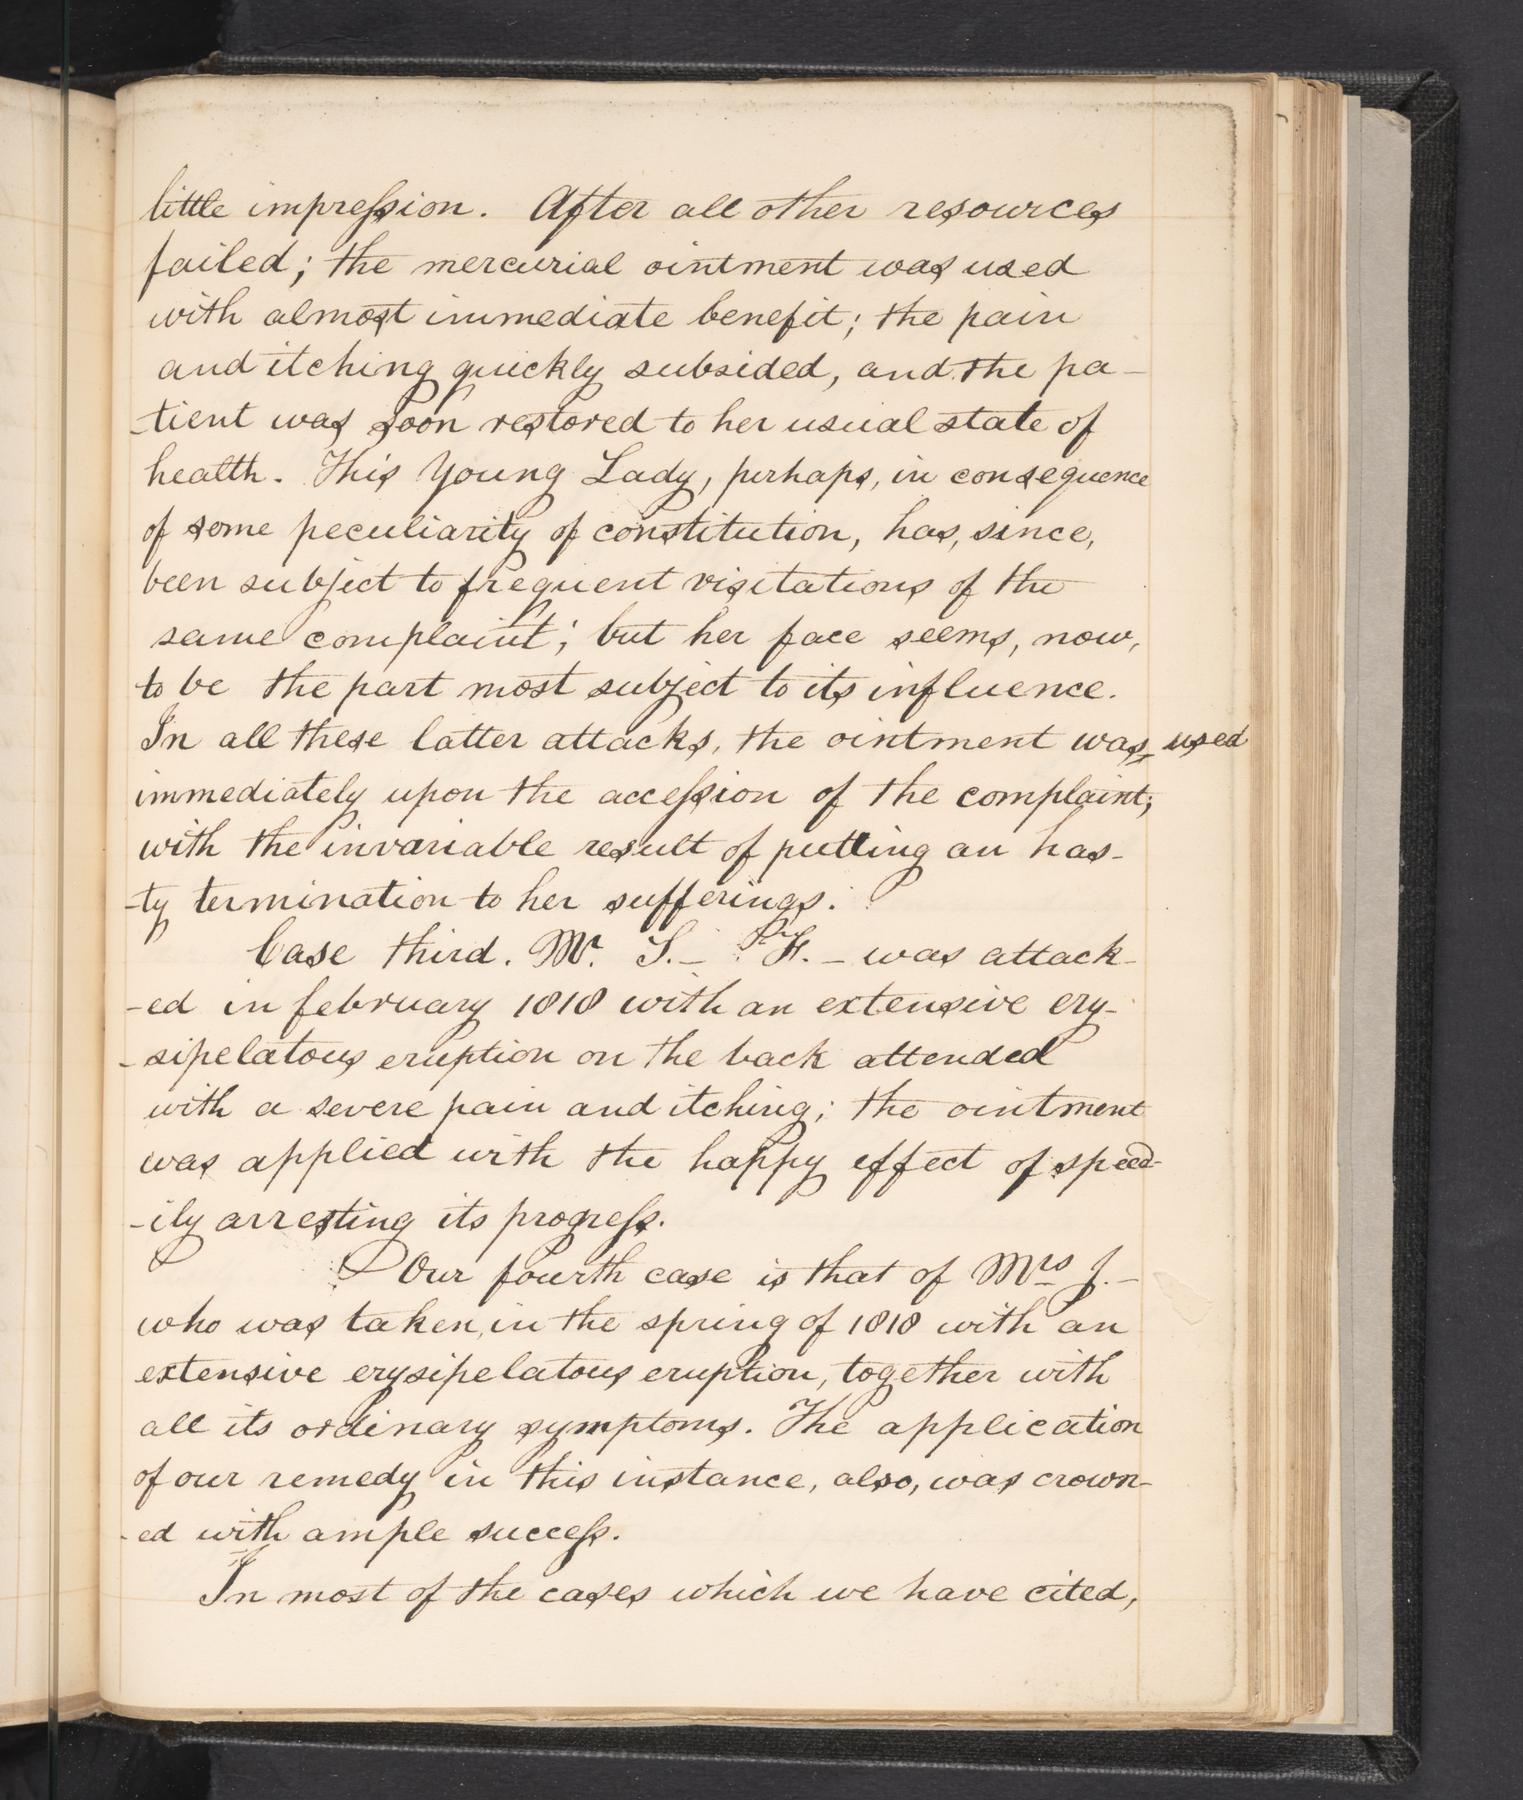 little impression. After all other resources
failed; the mercurial ointment was used
with almost immediate benefit; the pain
and itching quickly subsided, and the pa-
-tient was soon restored to her usual state of
health. This Young Lady, perhaps, in consequence
of some peculiarity of constitution, has, since,
been subject to frequent visitations of the
same complaint; but her face seems, now,
to be the part most subject to its influence.
In all these latter attacks, the ointment was used
immediately upon the accession of the complaint;
with the invariable result of putting an has-
-ty termination to her sufferings.
Case third. Mr. S.- H. - was attack-
-ed in february 1818 with an extensive ery-
-sipelatous eruption on the back attended
with a severe pain and itching; the ointment
was applied with the happy effect of speed-
-ily arresting its progress.
Our fourth case is that of Mrs J. -
who was taken, in the spring of 1818 with an
extensive erysipelatous eruption, together with
all its ordinary symptoms. The application
of our remedy in this instance, also, was crown-
-ed with ample success.
In most of the cases which we have cited,